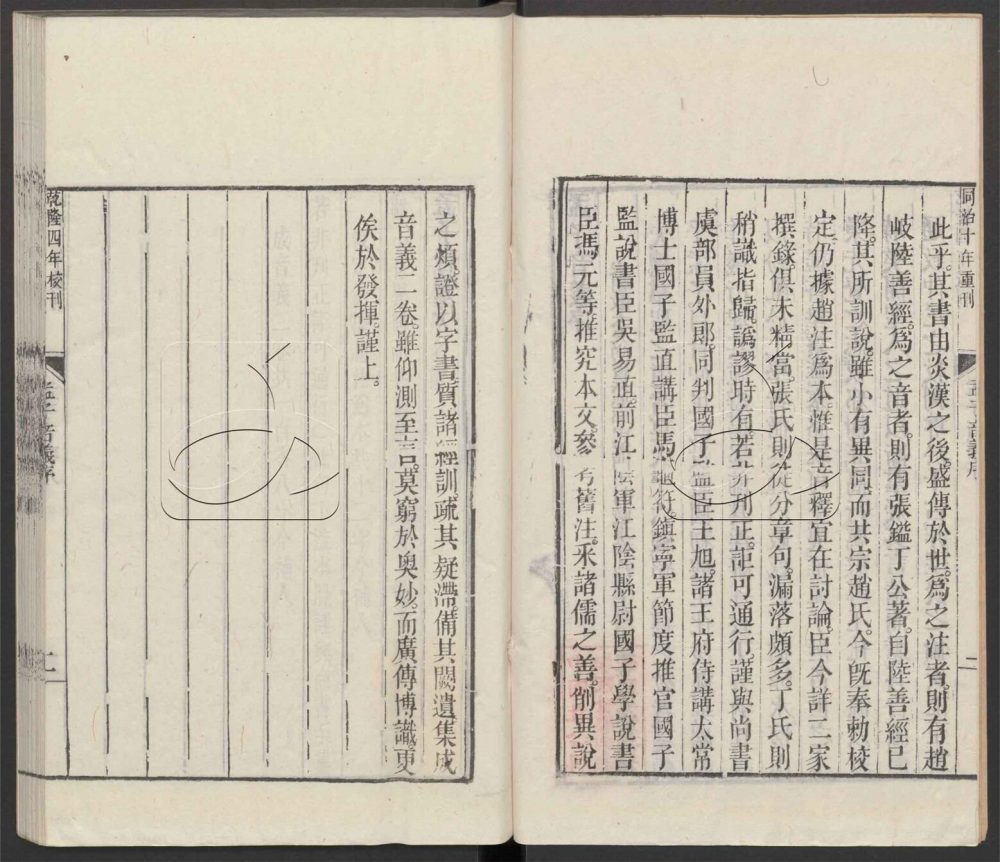 同治十年重刊
孟子音義序
二
此乎。其書由炎漢之後。盛傳於世。爲之注者。則有趙
岐陸善經。爲之音者。則有張鎰丁公著。自陸善經已
降。其所訓說。雖小有異同。而共宗趙氏。今旣奉勅校
定。仍據趙注爲本。惟是音釋宜在討論。臣今詳二家
撰錄。俱未精當。張氏則徒分章句。漏落頗多。丁氏則
稍識指歸。譌謬時有。若非刊正。詎可通行。謹與尚書
虞部員外郎。同判國子監臣王旭。諸王府侍講太常
博士國子監直講臣馬龜符。鎭寧軍節度推官國子
監說書臣吳易直。前江陰軍江陰縣尉國子學說書
臣馮元等推究本文。參考舊注。采諸儒之善。削異說
之煩。證以字書。質諸經訓。疏其疑滯。備其闕遺。集成
音義二卷。雖仰測至言。莫窮於奧妙。而廣傳博識。更
俟於發揮。謹上。
乾隆四年校刊
孟子音義序